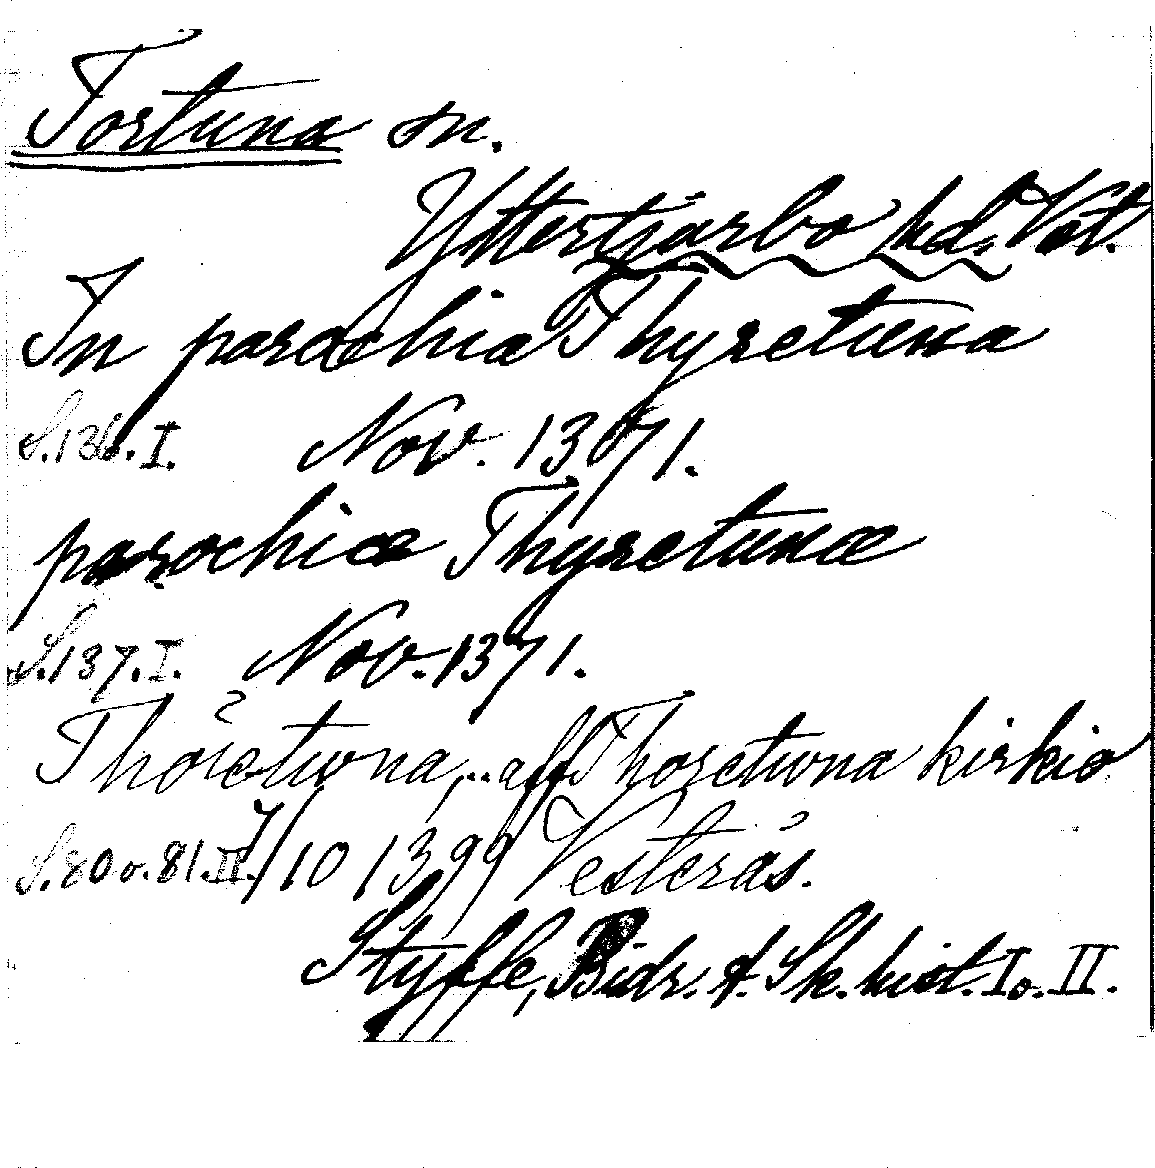 Tortuna sn.
Yttertjurbo hd, Vst.
In parochia Thyrctuna
S.136.I. Nov. 1371.
parochiæ Thyrctunæ
S.137.I. Nov. 1371.
Thorctwna,.. aff Thorctwna kirkio
S.80 o. 81.II. 7/10 1399 Vesterås.
Styffe, Bidr. t. Sk. hist. I o. II.